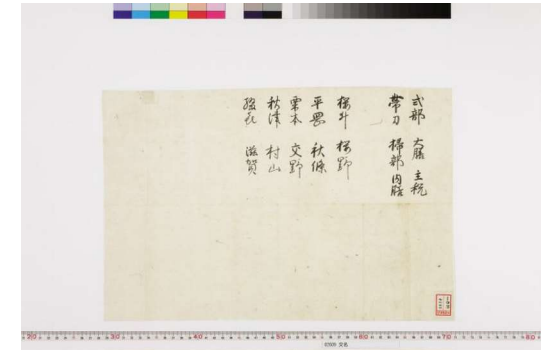 式部 大膳 主税
帯刀 掃部 内膳
桜井 桜野
平器 秋條
栗本 交野
秋津 村山
滋賀